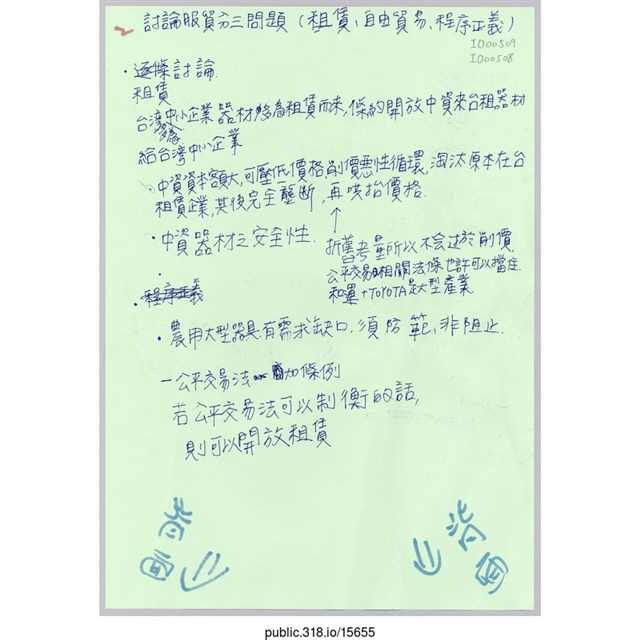 2 討論服貿分三問題(租賃、自由貿易、程序正義)
ID00509
ID00508
・逐條討論.
租賃
台湾中小企業器材多為租賃而來,條約開放中資來台租器材
給台湾中小企業
中資資本額大,可壓低價格,削價惡性循環,淘汰原本在台
租賃企業,其後完全壟斷,再哄抬價格.
↑
・中資器材之安全性.
折舊考量所以不会过於削價
公平交易相關法條也許可以擋住
和運+TOYOTA是大型產業
・程序正義
・農用大型器具有需求缺口.須防範,非阻止.
-公平交易法 加條例
若公平交易法可以制衡的話,
則可以開放租賃
背面
背面
public.318.io/15655